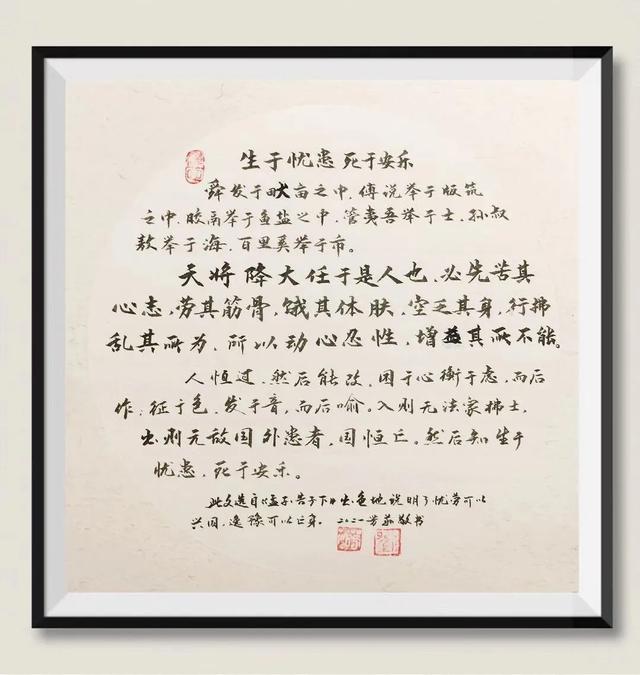 生于忧患 死于安乐
舜发于畎亩之中,傅说举于版筑
之中,胶鬲举于鱼盐之中,管夷吾举于士,孙叔
敖举于海,百里奚举于市。
天将降大任于是人也,必先苦其
心志,劳其筋骨,饿其体肤,空乏其身,行拂
乱其所为,所以动心忍性,增益其所不能。
人恒过,然后能改,困于心衡于虑,而后
作;征于色,发于音,而后喻。入则无法家拂士,
出则无敌国外患者,国恒亡。然后知生于
忧患,死于安乐。
此文选自《孟子·告子下》出色地说明了忧劳可以
兴国,逸豫可以亡身。二〇二一 敬书